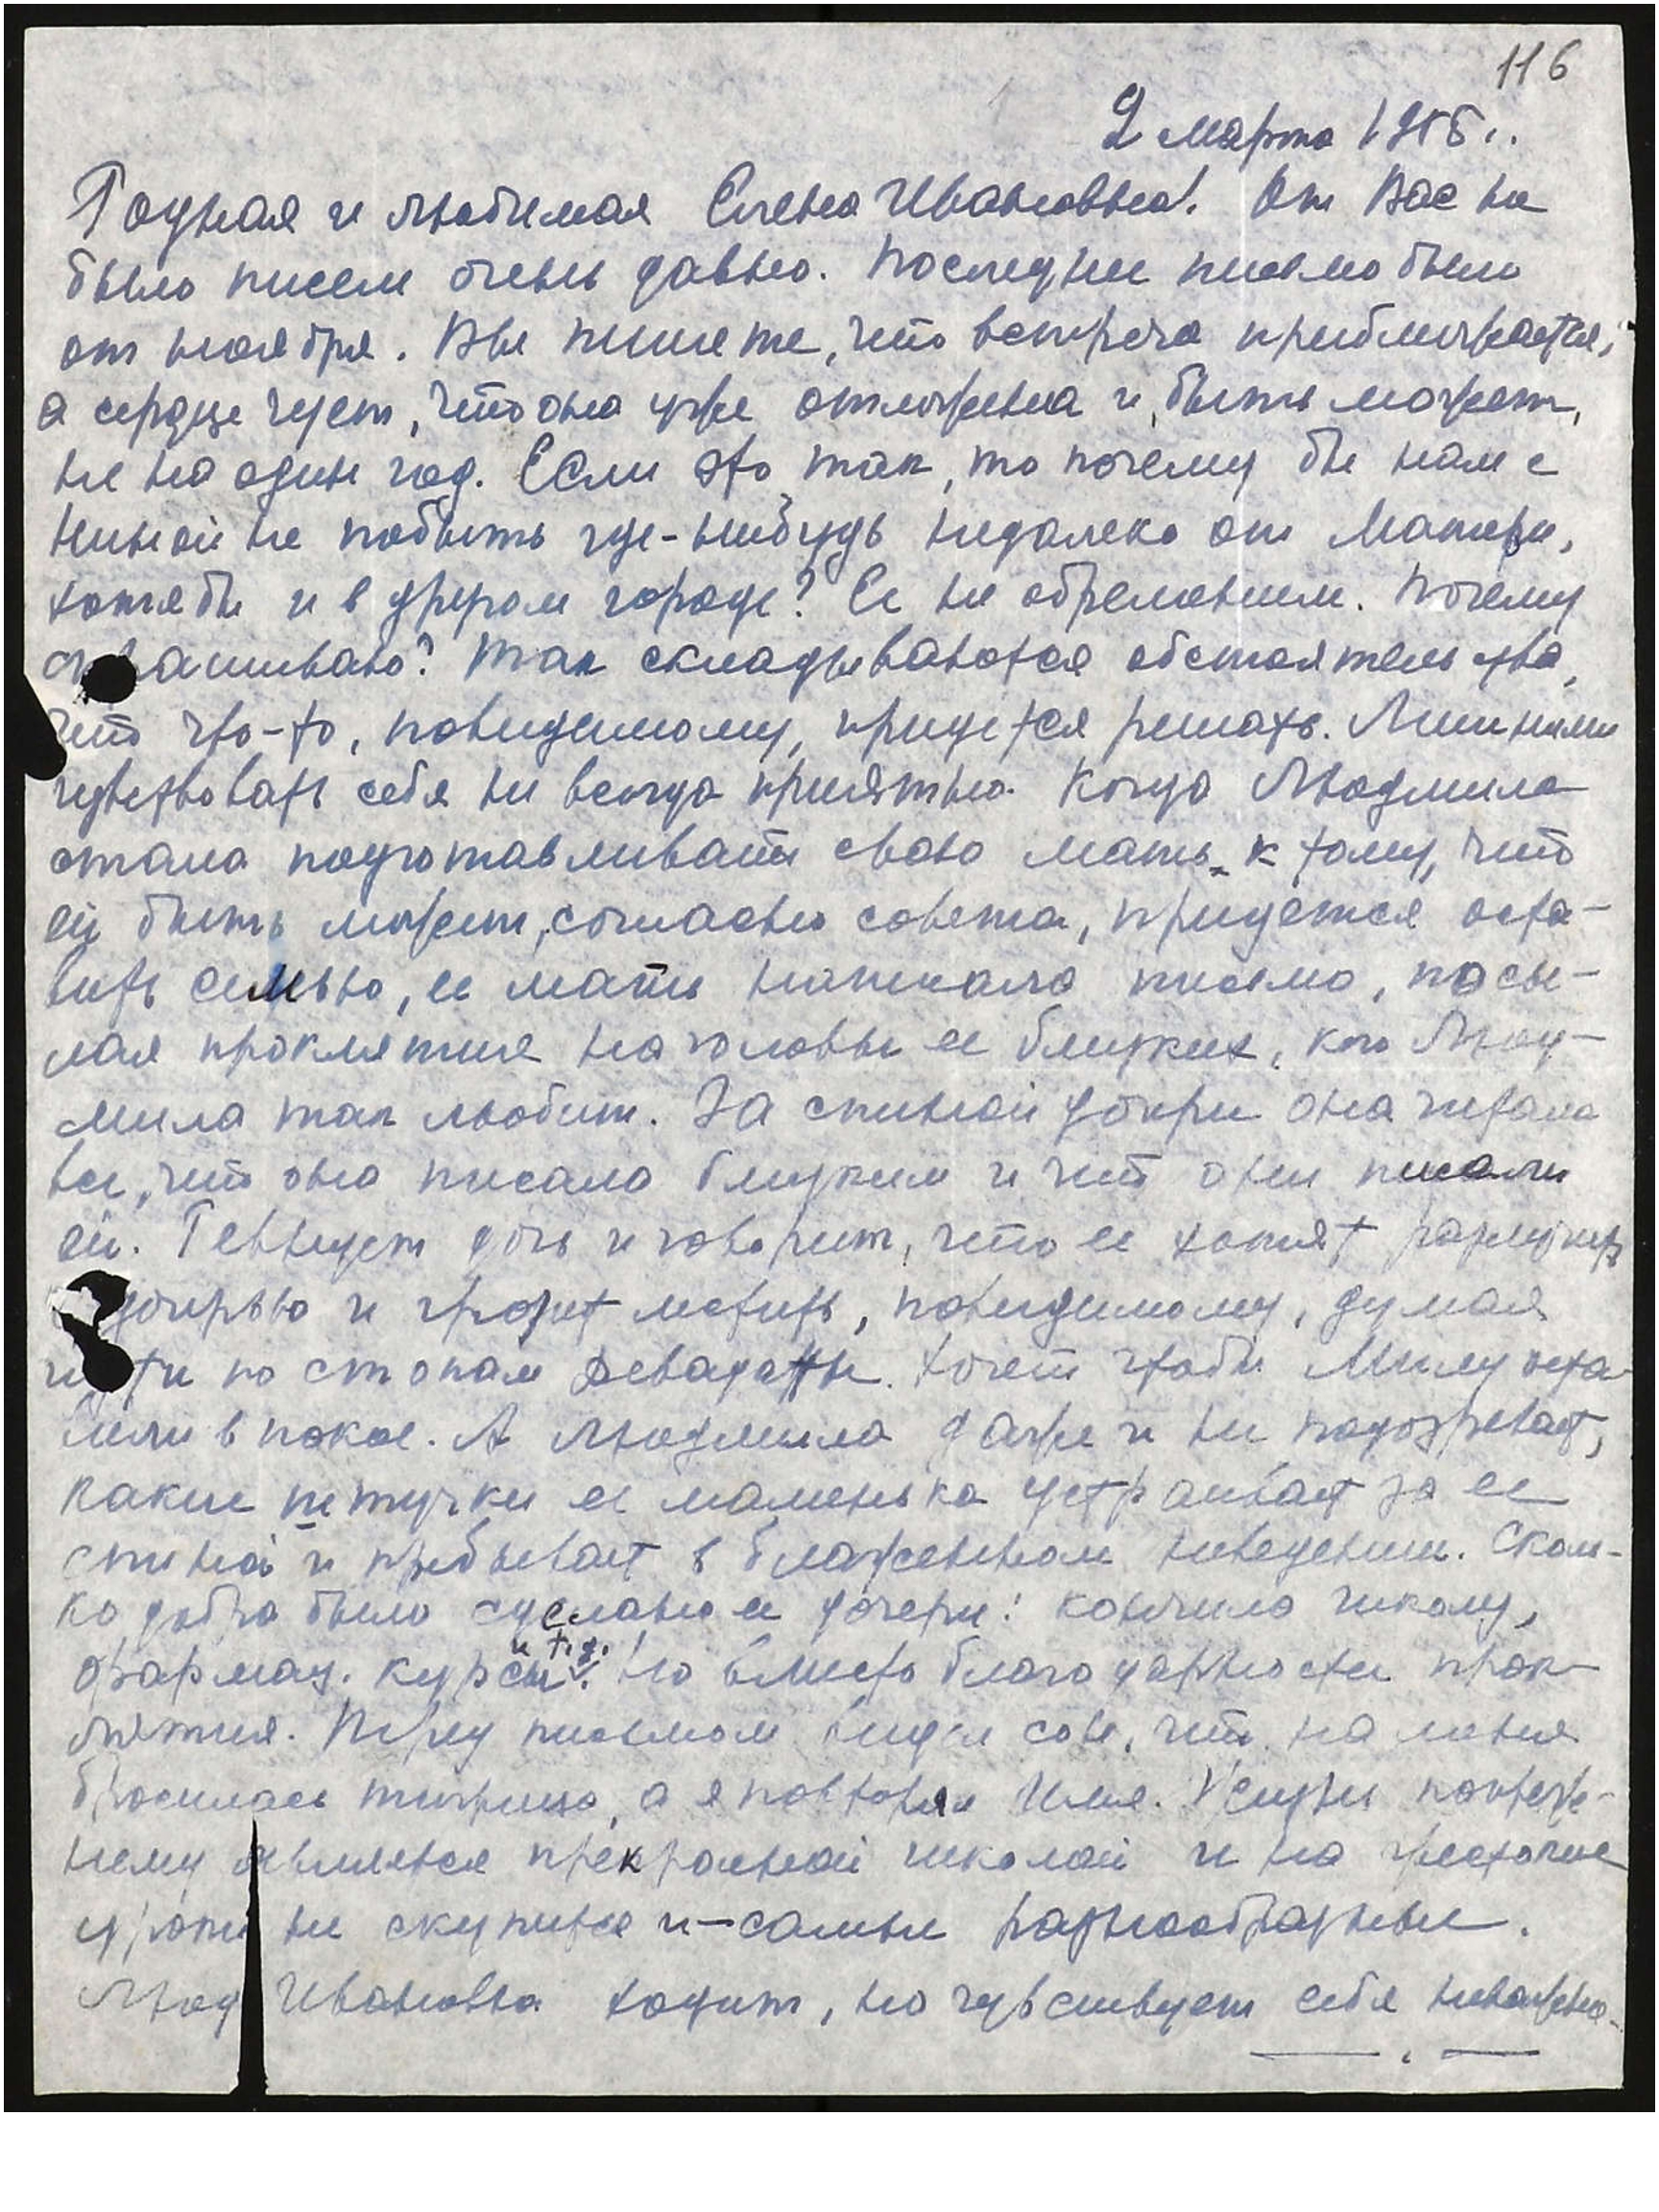 116
2 марта 1955 г.
Родная и любимая Елена Ивановна! От Вас не
было писем очень давно. Последнее письмо было
от ноября. Вы пишете, что встреча приближается,
а сердце чует, что она уже отложена и, быть может,
не на один год. Если это так, то почему бы нам с
Ниной не побыть где-нибудь недалеко от Матери,
хотя бы и в другом городе? Ее не обременим. Почему
спрашиваю? Так складываются обстоятельства,
что что-то, повидимому, придется решать. Лишними
чувствовать себя не всегда приятно. Когда Людмила
стала подготавливать свою мать к тому, что
ей быть может, согласно совета, придется оста-
вить семью, ее мать написала письмо, посы-
лая проклятие на головы ее близких, кого Люд-
мила так любит. За спиной дочери она читала
все, что она писала близким и что они писали
ей. Ревнует дочь и говорит, что ее хотят разлучить
дочерью и грозит мстить, повидимому, думая
идти по стопам Девадатты. Хочет чтобы Милу оста-
вили в покое. А Людмила даже и не подозревает,
какие штучки ее маменька устраивает за ее
спиной и пребывает в блаженном неведении. Сколь-
ко добра было сделано ее дочери: кончила школу,
фармац. курсы и т.д. Но вместо благодарности прок-
лятия. Перед письмом видел сон, что на меня
бросилась тигрица, а я повторял Имя. Жизнь попреж-
нему является прекрасной школой и на жестокие
уроки не скупится и – самые разнообразные.
Люд Ивановна ходит, но чувствует себя неважно.